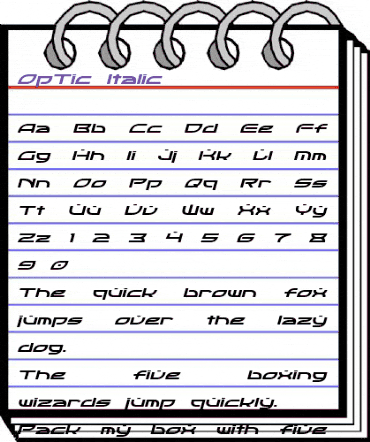 OpTic Italic
Aa Bb Cc Dd Ee Ff
Gg Hh Ii Jj Kk Ll Mm
Nn Oo Pp Qq Rr Ss
Tt Uu Vv Ww Xx Yy
Zz 1 2 3 4 5 6 7 8
9 0
The quick brown fox
jumps over the lazy
dog.
The five boxing
wizards jump quickly.
Pack my box with five